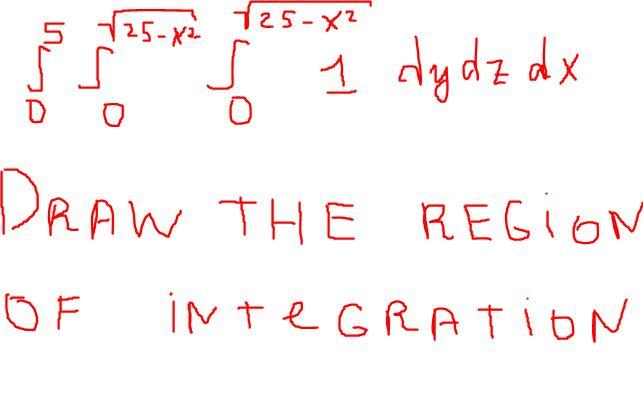 ∫₀⁵ ∫₀^√(25-x²) ∫₀^√(25-x²) 1 dy dz dx
DRAW THE REGiON
OF iNteGRAtiON